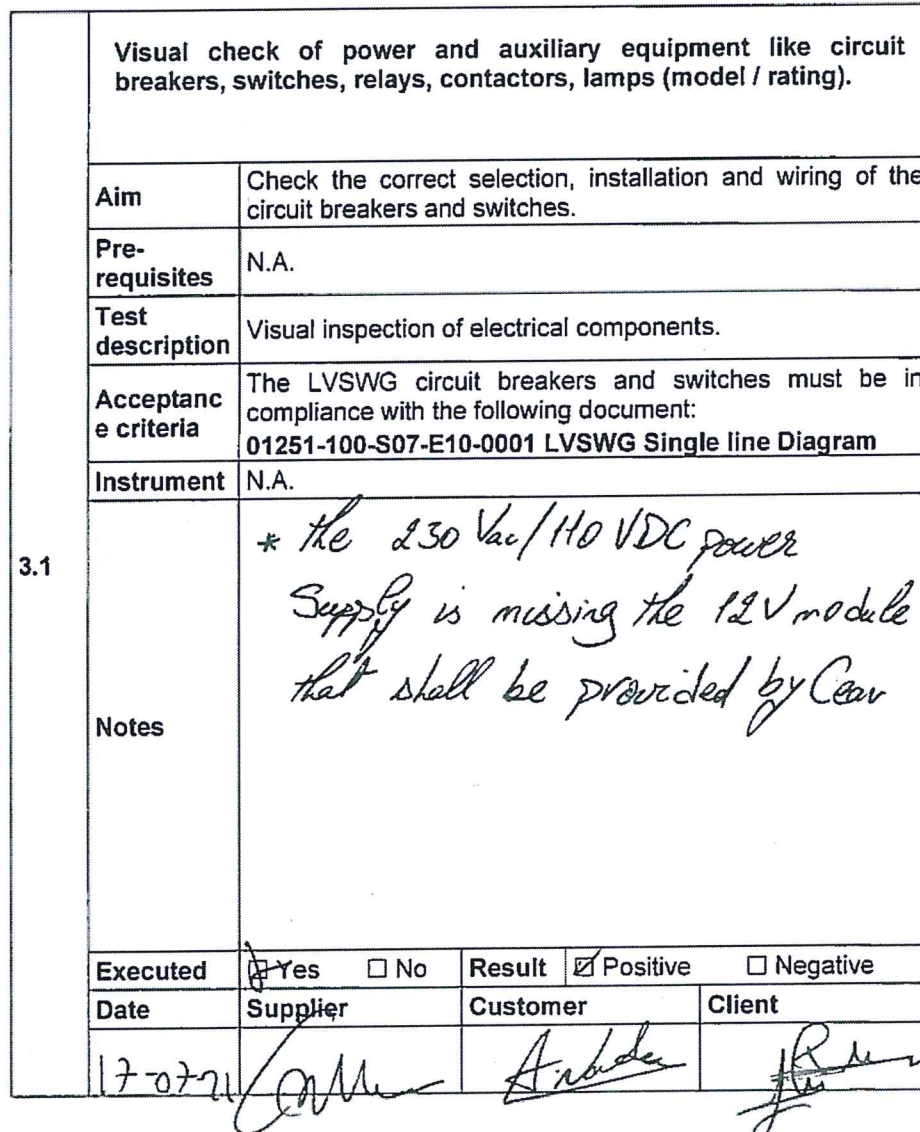 Visual check of power and auxiliary equipment like circuit
breakers, switches, relays, contactors, lamps (model / rating).
Aim
Check the correct selection, installation and wiring of the
circuit breakers and switches.
Pre-
requisites
N.A.
Test
description
Visual inspection of electrical components.
Acceptanc
e criteria
The LVSWG circuit breakers and switches must be in
compliance with the following document:
01251-100-S07-E10-0001 LVSWG Single line Diagram
Instrument
N.A.
3.1
Notes
* the 230 Vac/110 VDC power
Supply is missing the 12V module
that shall be provided by
Executed ☑ Yes ☐ No Result ☑ Positive ☐ Negative
Date Supplier Customer Client
17-07-21